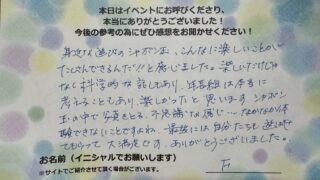 本日はイベントにお呼びくださり、
本当にありがとうございました！
今後の参考の為にぜひ感想をお聞かせください！
身近な遊びのシャボン玉、こんなに楽しいことが
たくさんできるんだ!!と感じました。楽しいだけじゃ
なく科学的な話しもあり、年長組は本当に
考えることもあり、楽しかったと思います。シャボン
玉の中で写真をとる、不思議な感じ…なかなか体
験できないことですよね。最後には自分たちも遊ばせ
てもらって大満足です。ありがとうございました。
お名前（イニシャルでお願いします）
※サイトでご紹介させて頂く場合がございます。
F